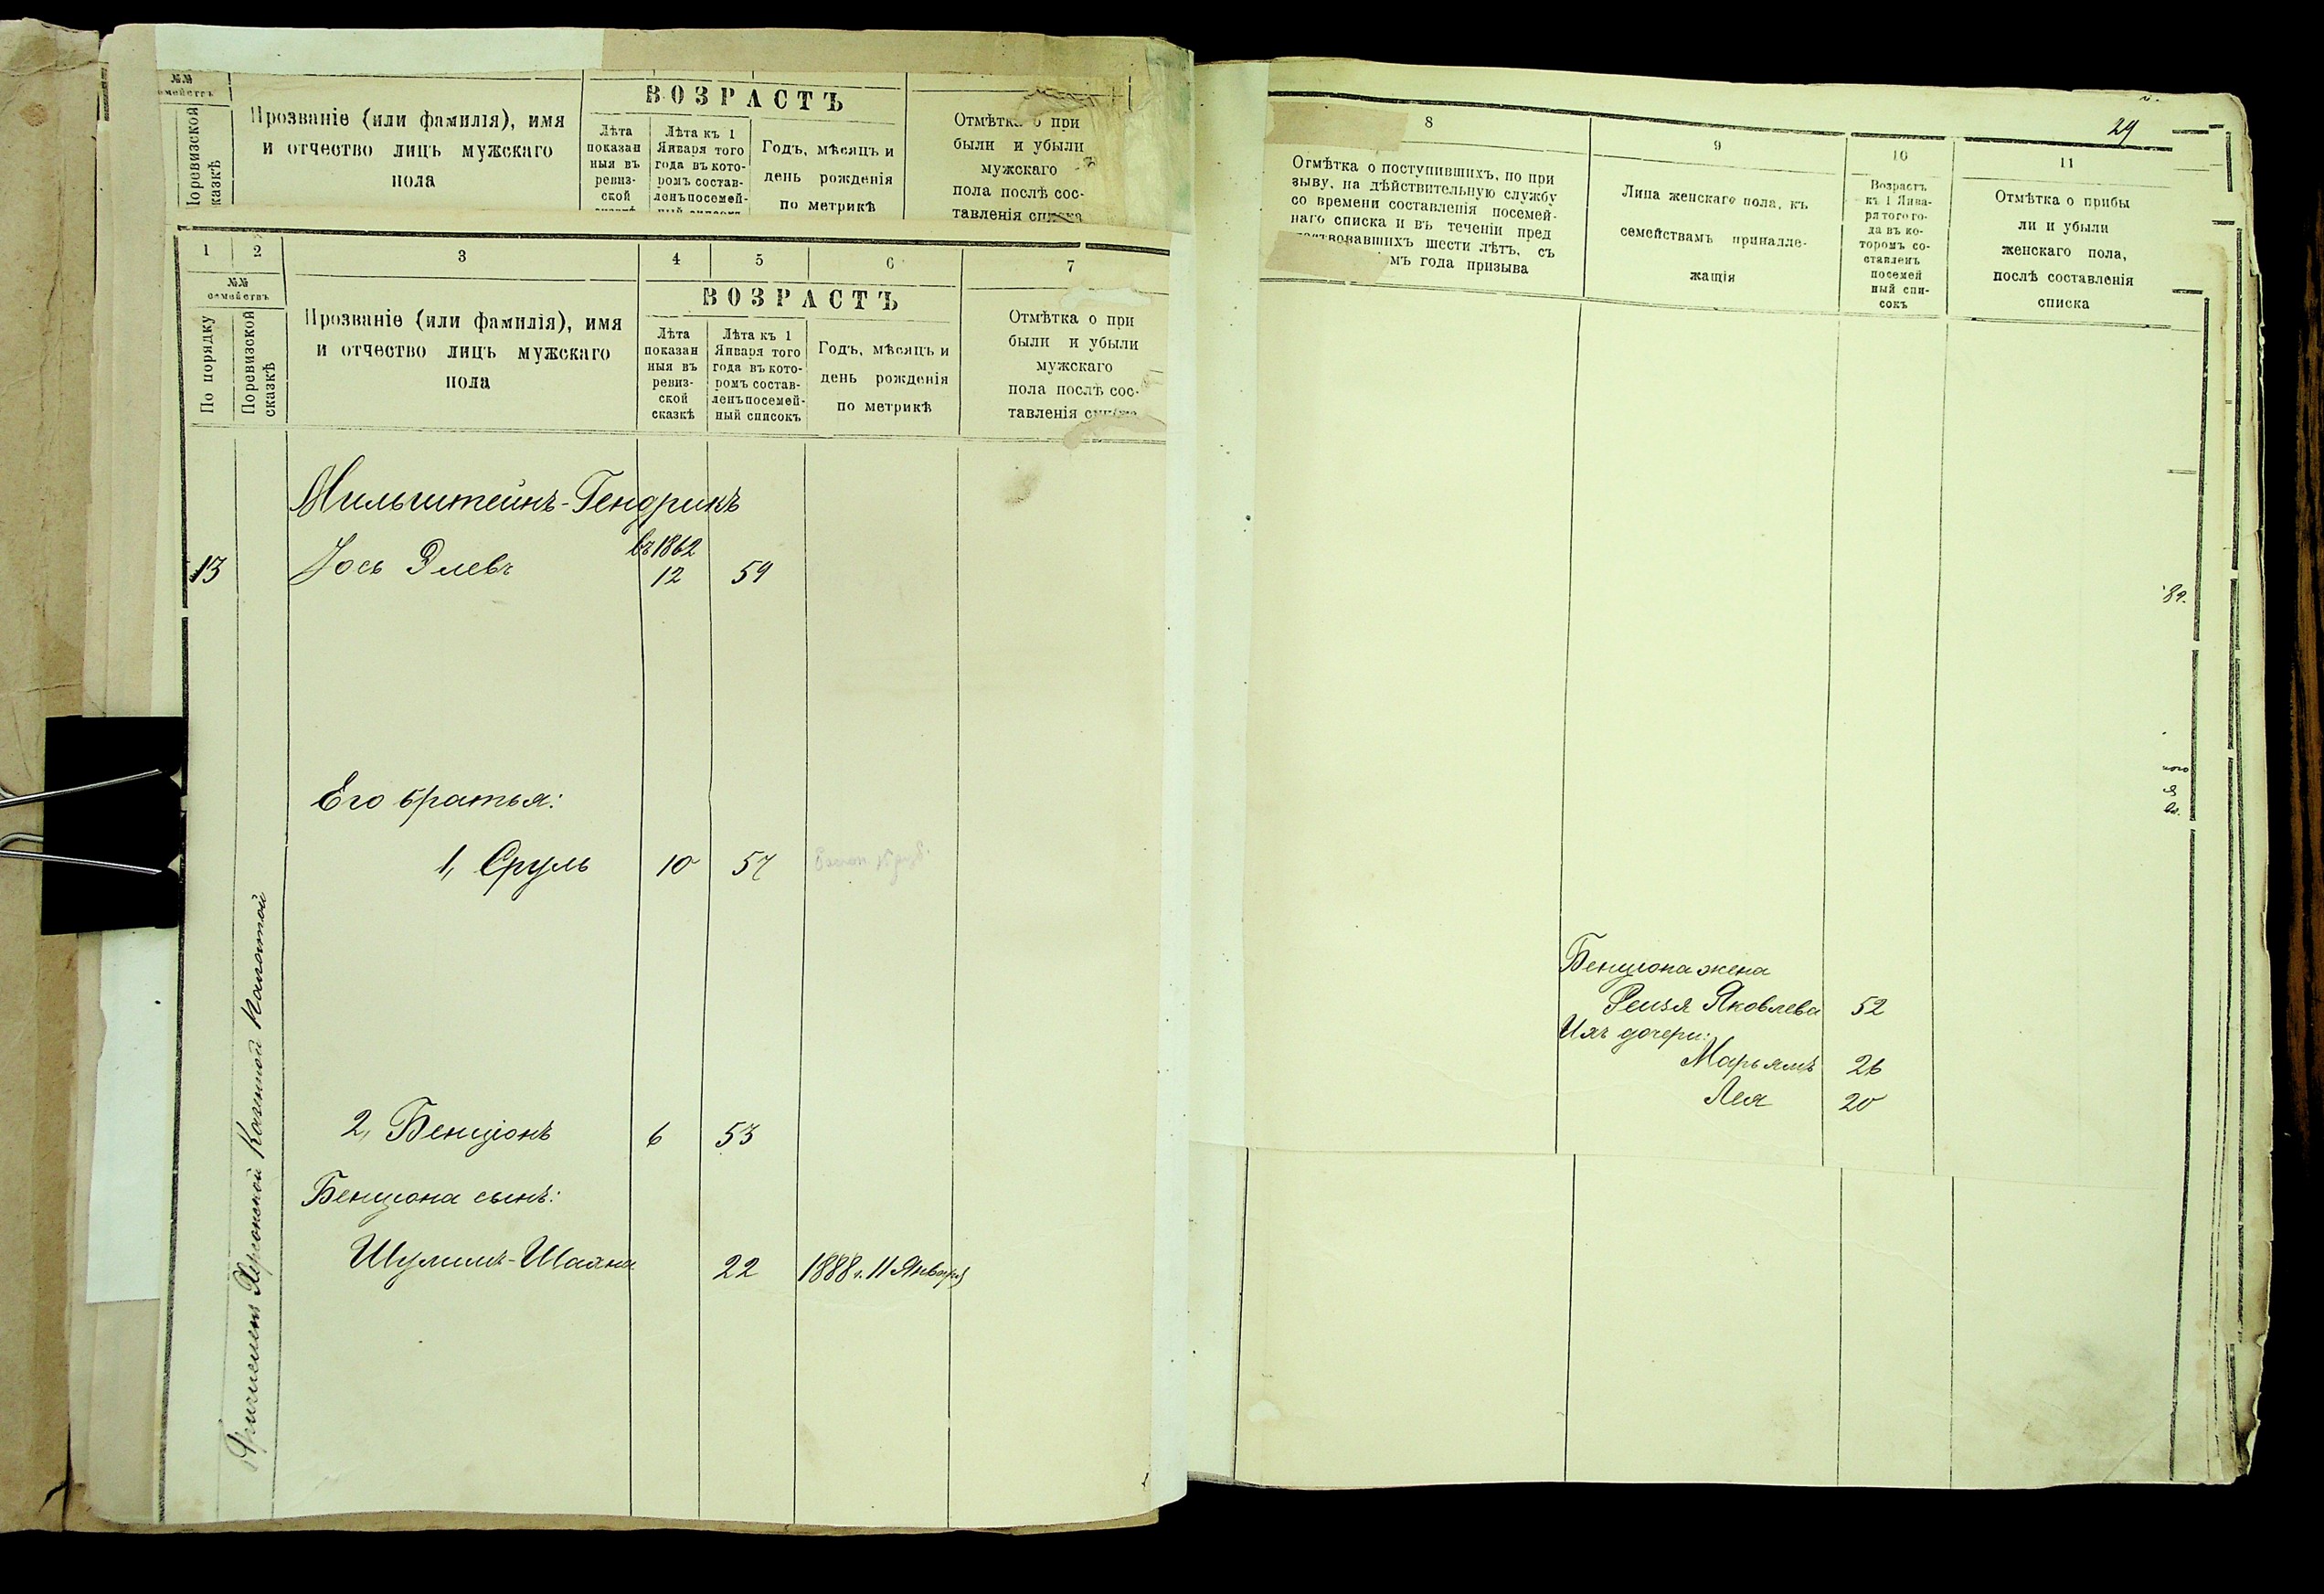 №№
Прозваніе (или фамилія), имя
и отчество лицъ мужскаго
пола
ВОЗРАСТЪ
Лѣта
показан
ныя въ
ревиз-
ской
Лѣта къ 1
Января того
года въ кото-
ромъ состав-
ленъ посемей-
Годъ, мѣсяцъ и
день рожденія
по метрикѣ
Отмѣтка о при
были и убыли
мужскаго
пола послѣ сос-
тавленія списка
1 2 3 4 5 6 7
№№
семействъ
По порядку
Поревизской
сказкѣ
Прозваніе (или фамилія), имя
и отчество лицъ мужскаго
пола
ВОЗРАСТЪ
Лѣта
показан
ныя въ
ревиз-
ской
сказкѣ
Лѣта къ 1
Января того
года въ кото-
ромъ состав-
ленъ посемей-
ный списокъ
Годъ, мѣсяцъ и
день рожденія
по метрикѣ
Отмѣтка о при
были и убыли
мужскаго
пола послѣ сос-
тавленія
Мильштейнъ-Гендрикъ
въ 1862
13 Іось Элевъ 12 59
Его братья:
1, Сруль 10 57
2, Бенціонъ 6 53
Бенціона сынъ:
Шулимъ-Шаяна 22 1888 г. 11 Января
Причислен Херсонской Казенной Палатой
29
8 9 10 11
Отмѣтка о поступившихъ, по при
зыву, на дѣйствительную службу
со времени составленія посемей-
наго списка и въ теченіи пред
шествовавшихъ шести лѣтъ, съ
мъ года призыва
Лица женскаго пола, къ
семействамъ принадле-
жащія
Возрастъ
къ 1 Янва-
ря того го-
да въ ко-
торомъ со-
ставленъ
посемей
ный спи-
сокъ
Отмѣтка о прибы
ли и убыли
женскаго пола,
послѣ составленія
списка
Бенціона жена
Рейзя Яковлева 52
Ихъ дочери:
Марьямъ 26
Лея 20